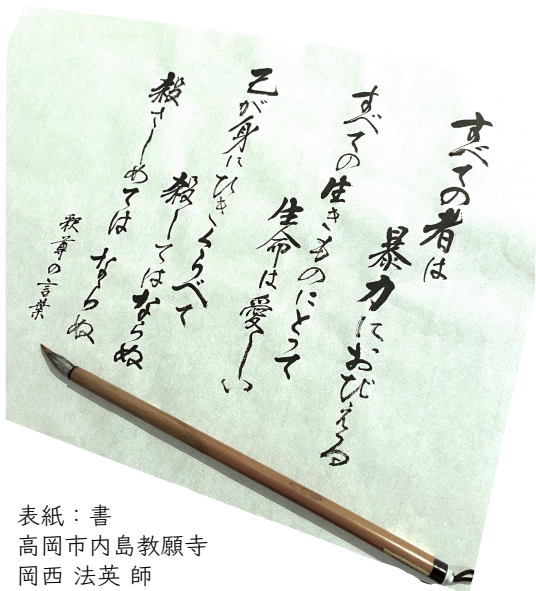 すべての者は
暴力におびえる
すべての生きものにとって
生命は愛しい
己が身にひきくらべて
殺してはならぬ
殺さしめては
ならぬ
釈尊の言葉
表紙：書
高岡市内島教願寺
岡西 法英 師